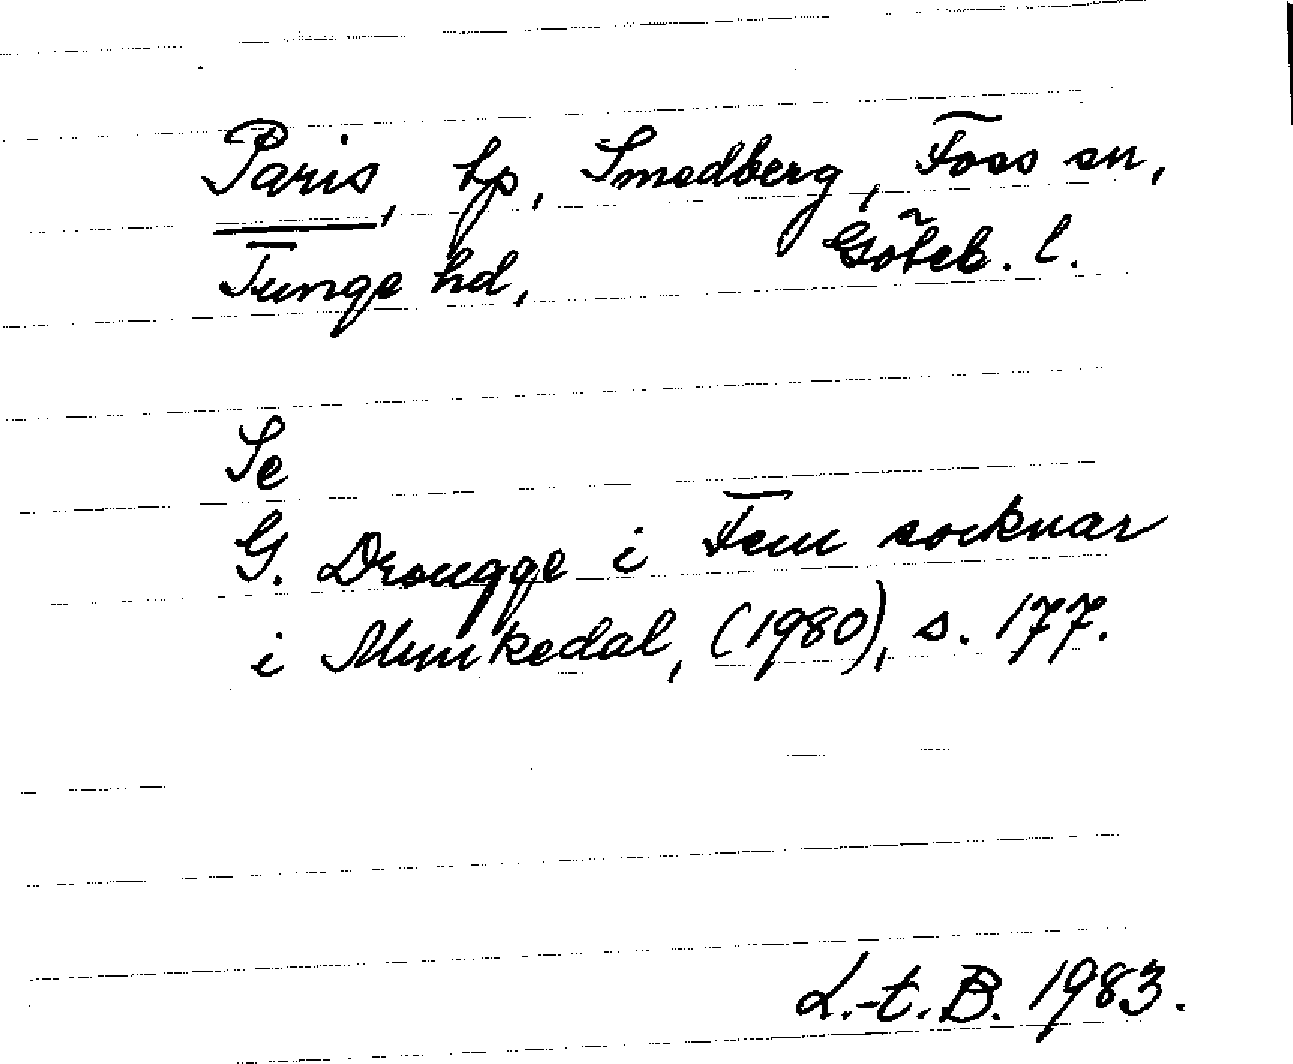 Paris, tp, Smedberg, Foss sn,
Tunge hd, Göteb. l.
Se
G. Drougge i Fem socknar
i Munkedal, (1980), s. 177.
L.-t. B. 1983.